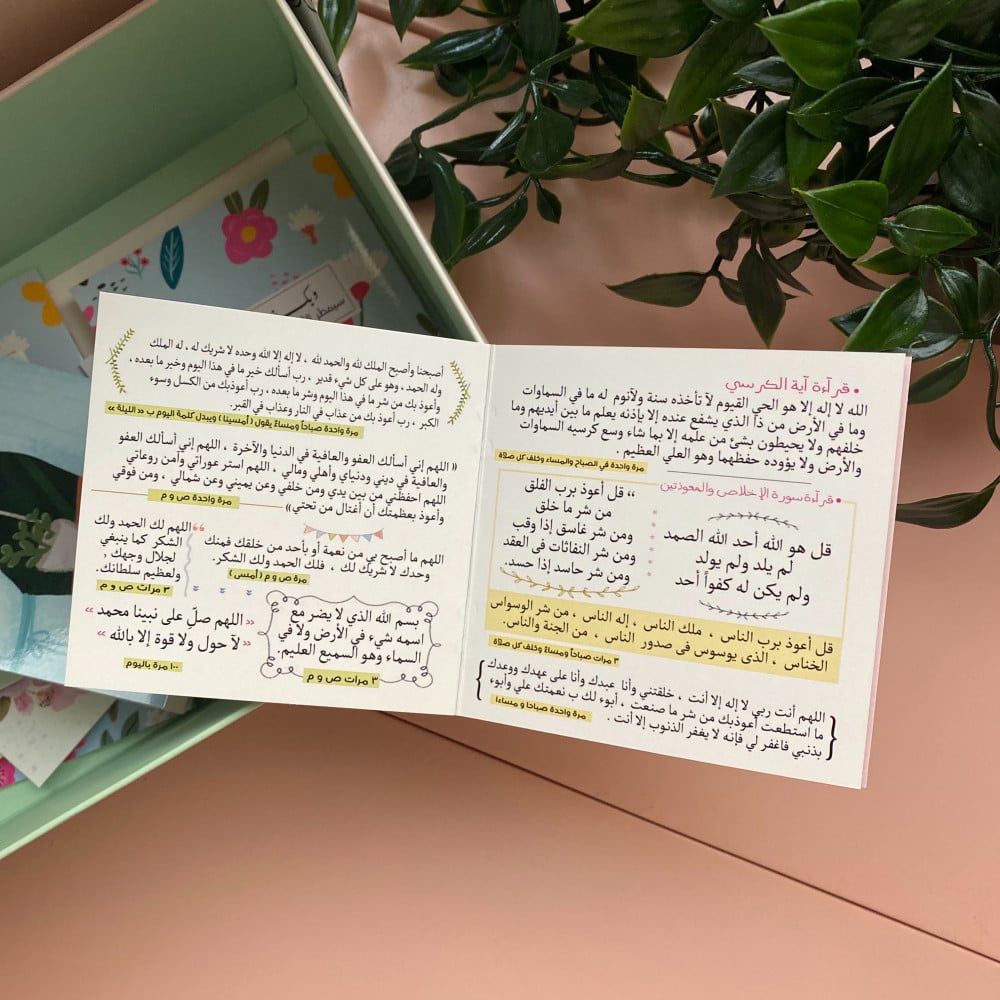 • قرآءة آية الكرسي
الله لا إله إلا هو الحي القيوم لآ تأخذه سنة ولآنوم له ما في السماوات
وما في الأرض من ذا الذي يشفع عنده إلا بإذنه يعلم ما بين أيديهم وما
خلفهم ولا يحيطون بشئ من علمه إلا بما شاء وسع كرسيه السماوات
والأرض ولا يؤوده حفظهما وهو العلي العظيم .
مرة واحدة في الصباح والمساء وخلف كل صلاة
• قرءآة سورة الإخلاص والمعوذتين
قل هو الله أحد الله الصمد
لم يلد ولم يولد
ولم يكن له كفواً أحد
،، قل أعوذ برب الفلق
من شر ما خلق
ومن شر غاسق إذا وقب
ومن شر النفاثات فى العقد
ومن شر حاسد إذا حسد.
قل أعوذ برب الناس ، ملك الناس ، إله الناس ، من شر الوسواس
الخناس ، الذى يوسوس فى صدور الناس ، من الجنة والناس.
٣ مرات صباحاً ومساءً وخلف كل صلاة
اللهم أنت ربي لا إله إلا أنت ، خلقتني وأنا عبدك وأنا على عهدك ووعدك
ما استطعت أعوذبك من شر ما صنعت ، أبوء لك ب نعمتك علي وأبوء
بذنبي فاغفر لي فإنه لا يغفر الذنوب إلا أنت .
مرة واحدة صباحا و مساءا
أصبحنا وأصبح الملك لله والحمد لله ، لا إله إلا الله وحده لا شريك له ، له الملك
وله الحمد ، وهو على كل شيء قدير ، رب أسألك خير ما في هذا اليوم وخير ما بعده ،
وأعوذ بك من شر ما في هذا اليوم وشر ما بعده ، رب أعوذبك من الكسل وسوء
الكبر ، رب أعوذ بك من عذاب في النار وعذاب في القبر.
مرة واحدة صباحاً ومساءً يقول ( أمسينا ) ويبدل كلمة اليوم ب << الليلة >>
« اللهم إني أسألك العفو والعافية في الدنيا والآخرة ، اللهم إني أسألك العفو
والعافية في ديني ودنياي وأهلي ومالي ، اللهم استر عوراتي وآمن روعاتي
اللهم احفظني من بين يدي ومن خلفي وعن يميني وعن شمالي ، ومن فوقي
وأعوذ بعظمتك أن أغتال من تحتي»
مرة واحدة ص و م
اللهم ما أصبح بي من نعمة أو بأحد من خلقك فمنك
وحدك لا شريك لك ، فلك الحمد ولك الشكر.
مرة ص و م ( أمس )
اللهم لك الحمد ولك
الشكر كما ينبغي
لجلال وجهك ,
ولعظيم سلطانك.
٣ مرات ص و م
بسم الله الذي لا يضر مع
اسمه شيء في الأرض ولا في
السماء وهو السميع العليم.
٣ مرات ص و م
« اللهم صلِّ على نبينا محمد »
« لآ حول ولا قوة إلا بالله »
١٠٠ مرة باليوم